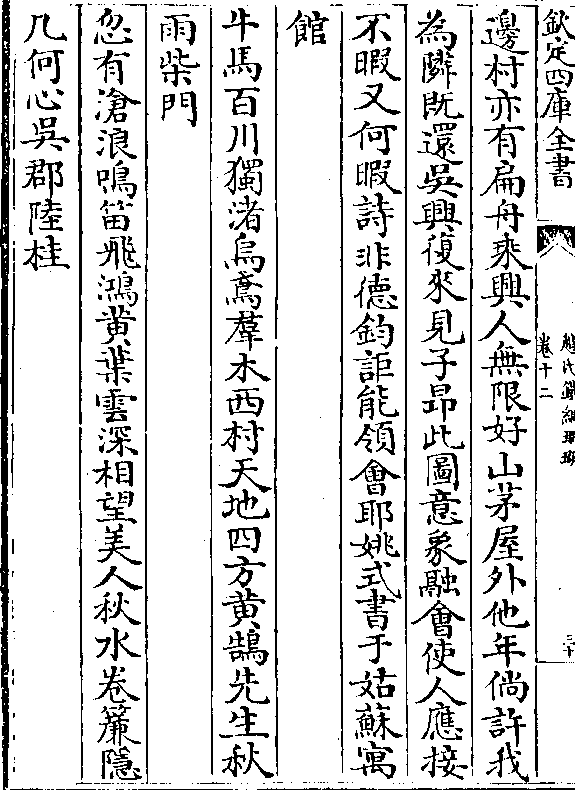 欽定四庫全書
趙氏鐵網珊瑚
卷十二
三十
邊村亦有扁舟乘興人無限好山茅屋外他年倘許我
為隣既還吳興復來見子昂此圖意象融會使人應接
不暇又何暇詩非德鈞詎能領會耶姚式書于姑蘇寓
館
牛馬百川獨渚烏鳶羣木西村天地四方黄鵠先生秋
雨柴門
忽有滄浪鳴笛飛鴻黄葉雲深相望美人秋水卷簾隱
几何心吳郡陸桂